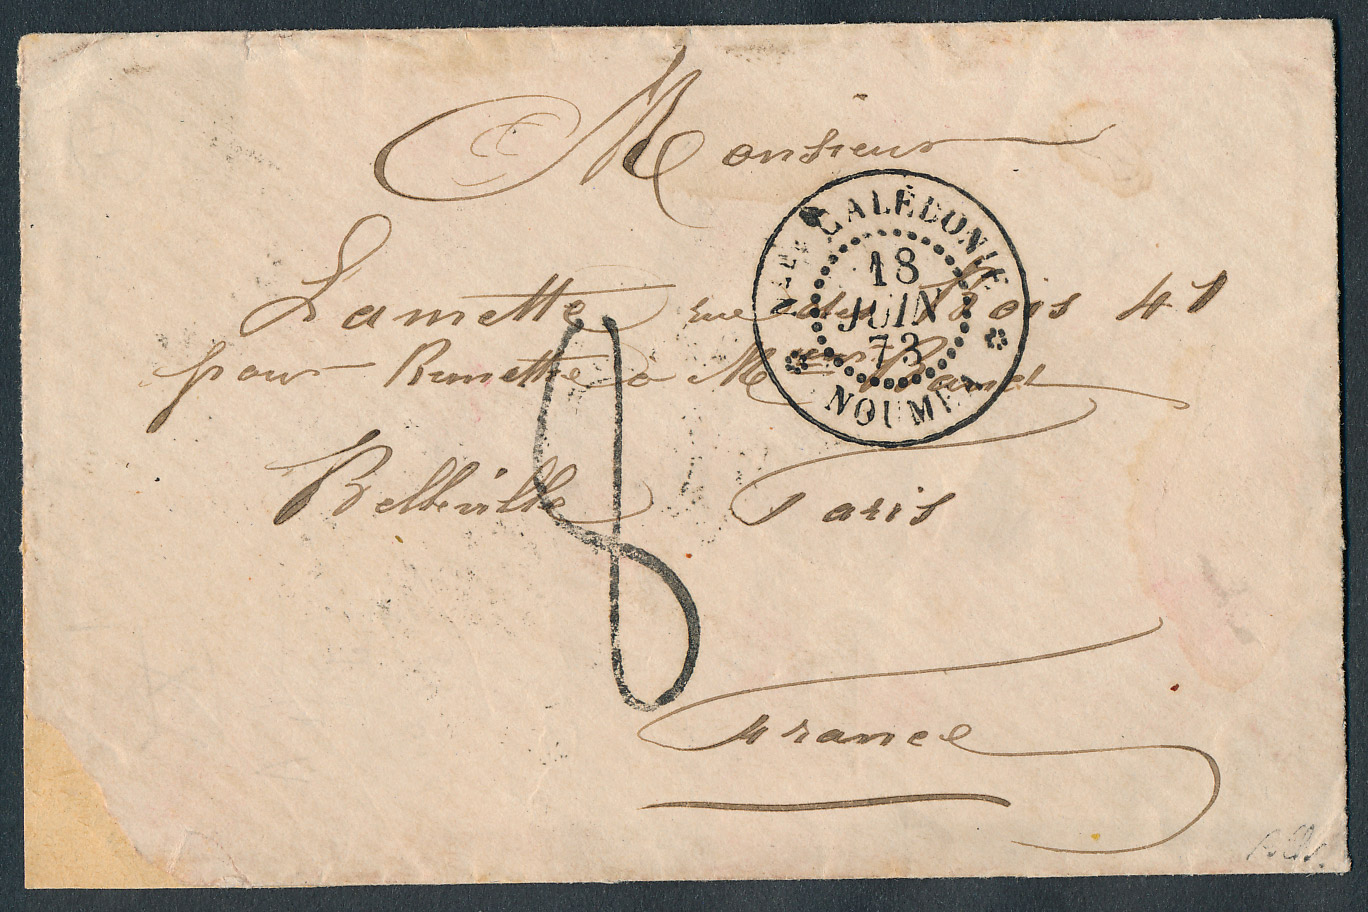 Monsieur
Lamette rue des Bois 41
pour Remettre a M
Belleville Paris
France
Nlle CALÉDONIE
18
JUIN
73
NOUMEA
8